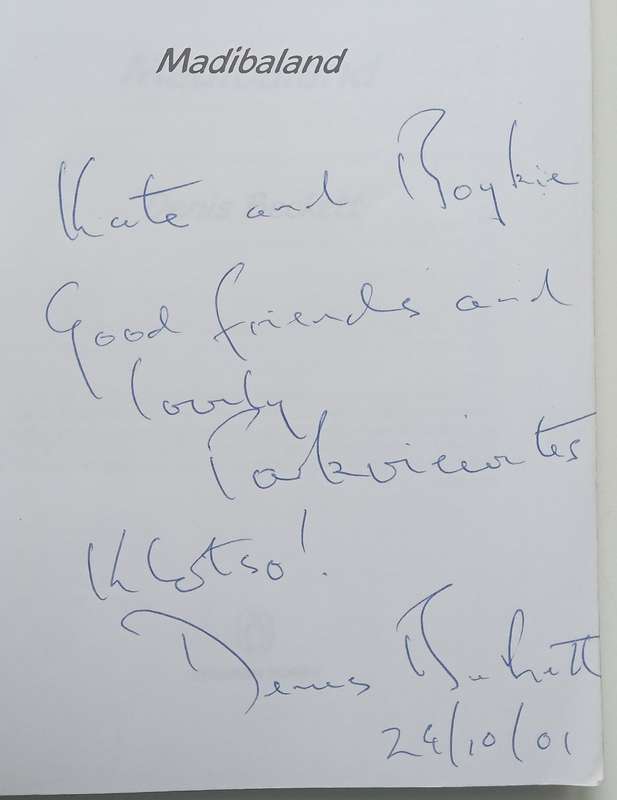 Madibaland
Kate and Roykie
Good friends and
lovely
Parkviewites
Khotso!
Denis Beckett
24/10/01